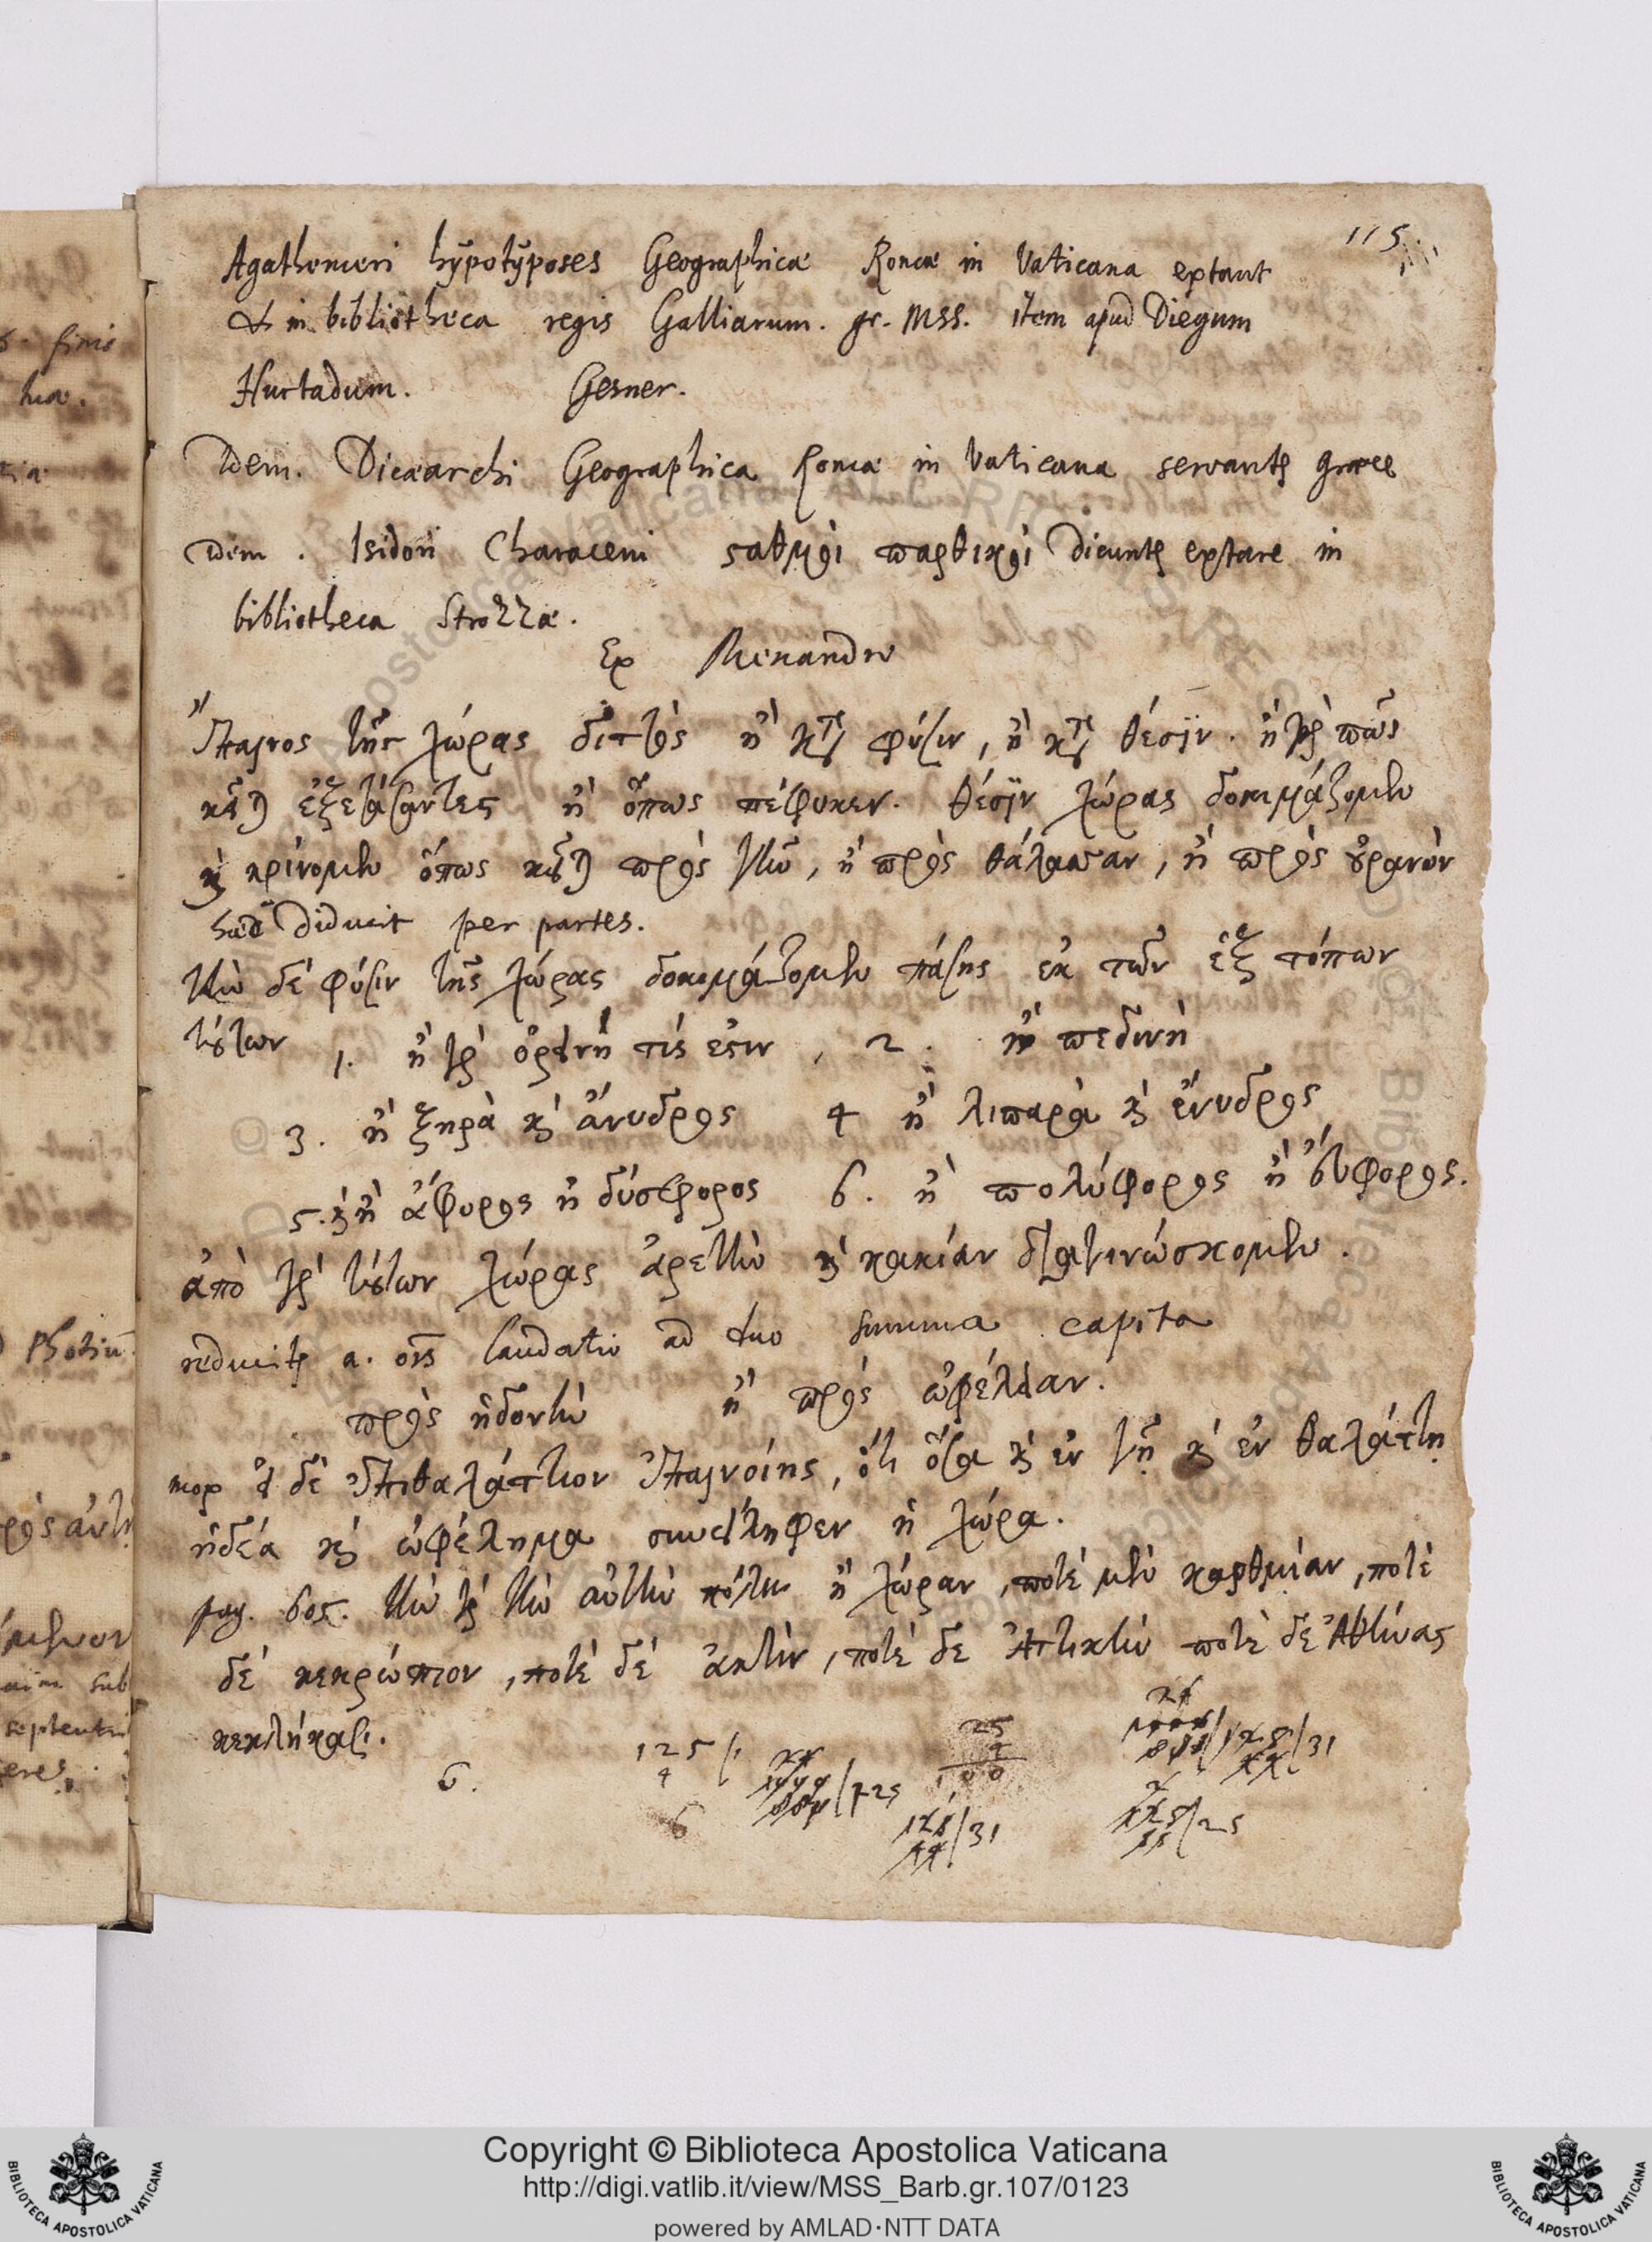 115
Agathemeri hypotyposes Geographicæ Romæ in Vaticana extant
& in bibliotheca regis Galliarum. gr. MSS. item apud Diegum
Hurtadum. Gesner.
Idem. Dicæarchi Geographica Romæ in Vaticana servantꝫ græce
Idem. Isidori Characeni ϛαθμοὶ παρθικοὶ dicuntꝫ extare in
bibliotheca Strozzæ.
Ex Menandro
Ἔπαινος τῆς χώρας διττὸς ἢ κτ φύσιν, ἢ κτ θέσιν. ἢ γὰρ πῶς
κεῖται ἐξετάσαντες ἢ ὅπως πέφυκεν. θέσιν χώρας δοκιμάζομεν
καὶ κρίνομεν ὅπως κεῖται πρὸς γῆν, ἢ πρὸς θάλασσαν, ἢ πρὸς οὐρανὸν
diducit per partes.
τὴν δὲ φύσιν τῆς χώρας δοκιμάζομεν πάσης ἐκ τῶν ἓξ τόπων
τούτων 1. ἢ γὰρ ὀρεινή τίς ἐϛιν, 2. ἢ πεδινὴ
3. ἢ ξηρὰ καὶ ἄνυδρος 4 ἢ λιπαρὰ καὶ ἔνυδρος
5. καὶ ἢ ἄφορος ἢ δύσφορος 6. ἢ πολύφορος ἢ εὔφορος.
ἀπὸ γὰρ τούτων χώρας ἀρετὴν καὶ κακίαν διαγινώσκομεν.
reducitꝫ a. ois laudatio ad duo summa capita
πρὸς ἡδονὴν ἢ πρὸς ὠφέλειαν.
mox εἰ δὲ ἐπιθαλάττιον ἐπαινοίης, ὅτι ὅσα καὶ ἐν γῇ καὶ ἐν θαλάττῃ
ἡδέα καὶ ὠφέλημα συνείληφεν ἡ χώρα.
pag. 605. τὴν γὰρ τὴν αὐτὴν πόλιν ἢ χώραν, ποτὲ μὲν καρθμίαν, ποτὲ
δὲ κεκρώπιον, ποτὲ δὲ ἀκτὴν, ποτὲ δὲ Ἀττικὴν ποτὲ δὲ Ἀθήνας
κεκλήκασι.
6.
125
4
6
125
25
4
100
31
31
25
Photiū
septentri